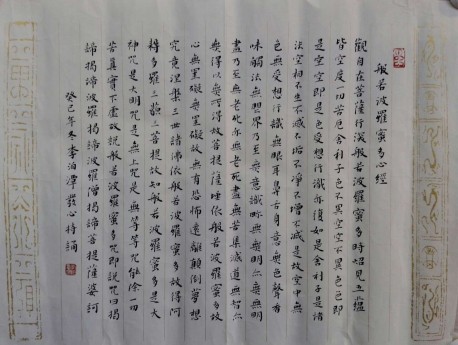 般若波羅蜜多心經
觀自在菩薩行深般若波羅蜜多時照見五蘊
皆空度一切苦厄舍利子色不異空空不異色色即
是空空即是色受想行識亦復如是舍利子是諸
法空相不生不滅不垢不淨不增不減是故空中無
色無受想行識無眼耳鼻舌身意無色聲香
味觸法無眼界乃至無意識界無無明亦無無明
盡乃至無老死亦無老死盡無苦集滅道無智亦
無得以無所得故菩提薩埵依般若波羅蜜多故
心無罣礙無罣礙故無有恐怖遠離顛倒夢想
究竟涅槃三世諸佛依般若波羅蜜多故得阿
耨多羅三藐三菩提故知般若波羅蜜多是大
神咒是大明咒是無上咒是無等等咒能除一切
苦真實不虛故說般若波羅蜜多咒即說咒曰揭
諦揭諦波羅揭諦波羅僧揭諦菩提薩婆訶
癸巳年冬李伯潭發心持誦